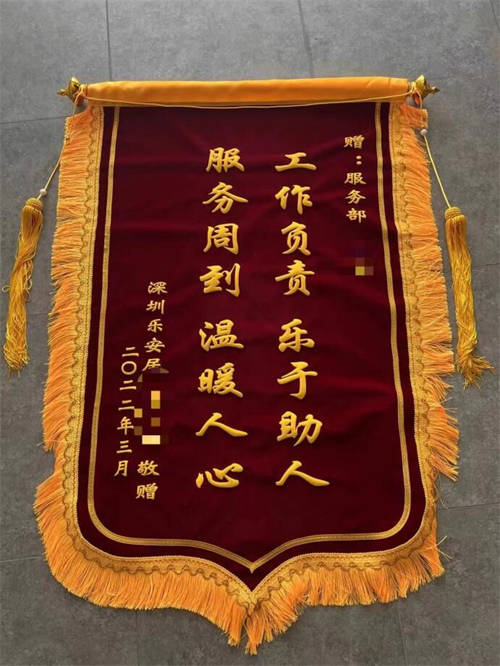 赠：服务部
工作负责 乐于助人
服务周到 温暖人心
深圳乐安居 敬赠
二〇二二年三月